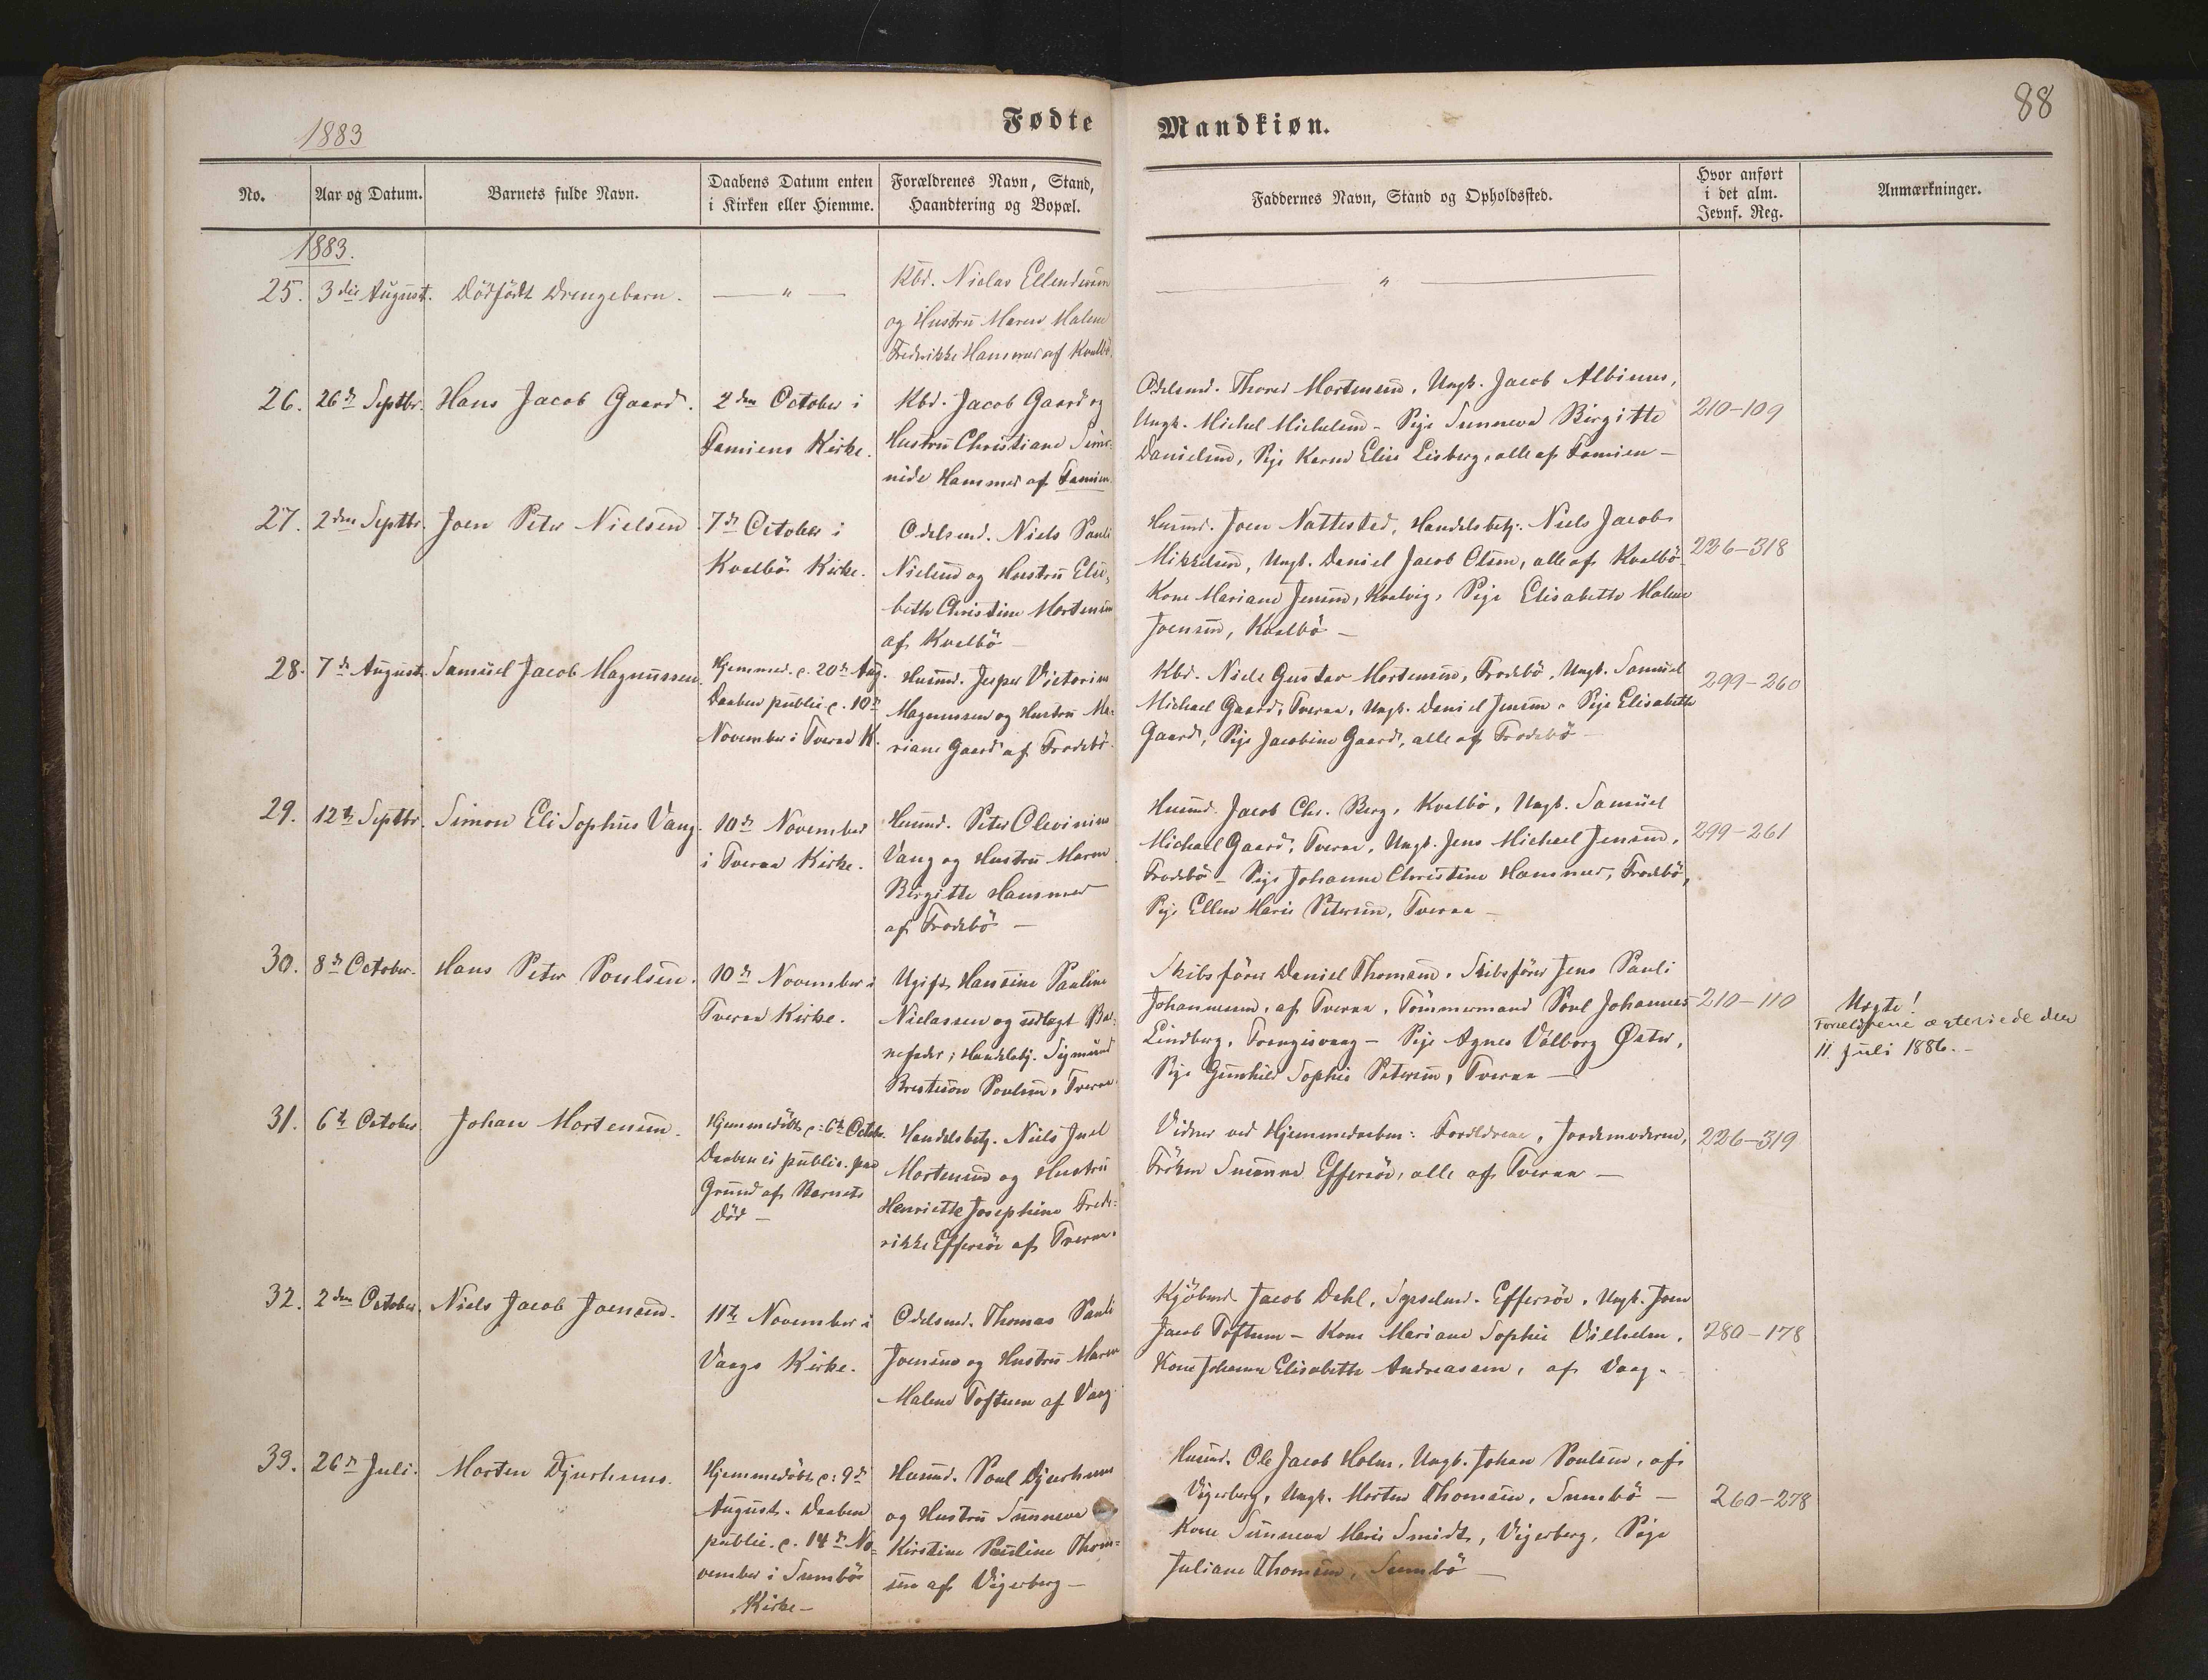 1883
Fødte
Mandkiøn.
88
No.
Aar og Datum.
Barnets fulde Navn.
Daabens Datum enten
i Kirken eller Hiemme.
Forældrenes Navn, Stand,
Haandtering og Bopæl.
Faddernes Navn, Stand og Opholdssted.
Hvor anført
i det alm.
Jevnf. Reg.
Anmærkninger.
1883.
25. 3die August. Dödfödt Drengebarn. — " —
Kbd. Niclas Ellendersen
og Hustru Maren Malene
Fredrikke Hammer af Kvalbö.
— " —
26. 26de Septbr. Hans Jacob Gaard.
2den October i
Famiens Kirke.
Kbd. Jacob Gaard og
Hustru Christiane Simo-
nide Hammer af Famien.
Odelsmd. Thorer Mortensen, Ungk. Jacob Albinus,
Ungk. Michel Michelsen - Pige Sunneva Birgitte
Danielsen, Pige Karen Elise Lisberg, alle af Famien -
210-109
27. 2den Septbr. Joen Peter Nielsen
7de October i
Kvalbö Kirke.
Odelsmd. Niels Pauli
Nielsen og Hustru Else-
beth Christine Mortensen
af Kvalbö
Husmd. Joen Nattestad, Handelsbetj. Niels Jacob
Mikkelsen, Ungk. Daniel Jacob Olsen, alle af Kvalbö -
Kone Mariane Jensen, Kvalvig, Pige Elisabeth Malene
Joensen, Kvalbö -
226-318
28. 7de August. Samuel Jacob Magnussen.
Hjemmed. e. 20de Aug.
Daaben public. e. 10de
November i Tveraa K.
Husmd. Jesper Victorin
Magnussen og Hustru Ma-
riane Gaard af Frodebö.
Kbd. Niels Gustav Mortensen, Frodebö, Ungk. Samuel
Michael Gaard, Tveraa, Ungk. Daniel Jensen. Pige Elisabeth
Gaard, Pige Jacobine Gaard, alle af Frodebö -
299-260
29. 12te Septbr. Simon Eli Sophus Vang.
10de November
i Tveraa Kirke.
Husmd. Peter Olevinius
Vang og Hustru Maren
Birgitte Hammer
af Frodebö -
Husmd. Jacob Chr. Berg, Kvalbö, Ungk. Samuel
Michael Gaard, Tveraa, Ungk. Jens Michael Jensen,
Frodebö - Pige Johanne Christine Hammer, Frodebö,
Pige Ellen Marie Petersen, Tveraa -
299-261
30. 8de October. Hans Peter Poulsen.
10de November i
Tveraa Kirke.
Ugift Hansine Pauline
Niclassen og udlagt Bar-
nefader, Handelsbj. Sigmund
Brestesøn Poulsen, Tveraa.
Skibsförer Daniel Thomsen, Skibsförer Jens Pauli
Johannesen, af Tveraa, Tömmermand Poul Johannes
Lindberg, Trangisvaag - Pige Agnes Valborg Øster,
Pige Gunhild Sophie Petersen, Tveraa -
210-110
Uægte!
Forældrene ægteviede den
11. Juli 1886. -
31. 6te October. Johan Mortensen.
Hjemmedöbt e: 6te Octbr.
Daaben ei public. paa
Grund af Barnets
Död -
Handelsbetj. Niels Juel
Mortensen og Hustru
Henriette Josephine Frede-
rikke Effersöe af Tveraa.
Vidner ved Hjemmedaaben: Forældrene, Jordemoderen,
Fröken Susanne Effersöe, alle af Tveraa -
226-319
32. 2den October. Niels Jacob Joensen.
11te November i
Vaags Kirke.
Odelsmd. Thomas Pauli
Joensen og Hustru Maren
Malene Toftum af Vaag.
Kjöbmd. Jacob Dahl, Sysselmd. Effersöe, Ungk. Joen
Jacob Toftum - Kone Mariane Sophie Vilhelm,
Kone Johanne Elisabeth Andreasen, af Vaag.
280-178
33. 26de Juli. Morten Djurhuus.
Hjemmedöbt e: 9de
August. Daaben
public. e. 14de No-
vember i Sumbö
Kirke -
Husmd. Poul Djurhuus
og Hustru Sunneva
Kirstine Pauline Thom-
sen af Vigerberg -
Husmd. Ole Jacob Holm, Ungk. Johan Poulsen, af
Vigerberg, Ungk. Morten Thomsen, Sumbö -
Kone Sunneva Marie Smidt, Vigerberg, Pige
Juliane Thomsen, Sumbö -
260-278